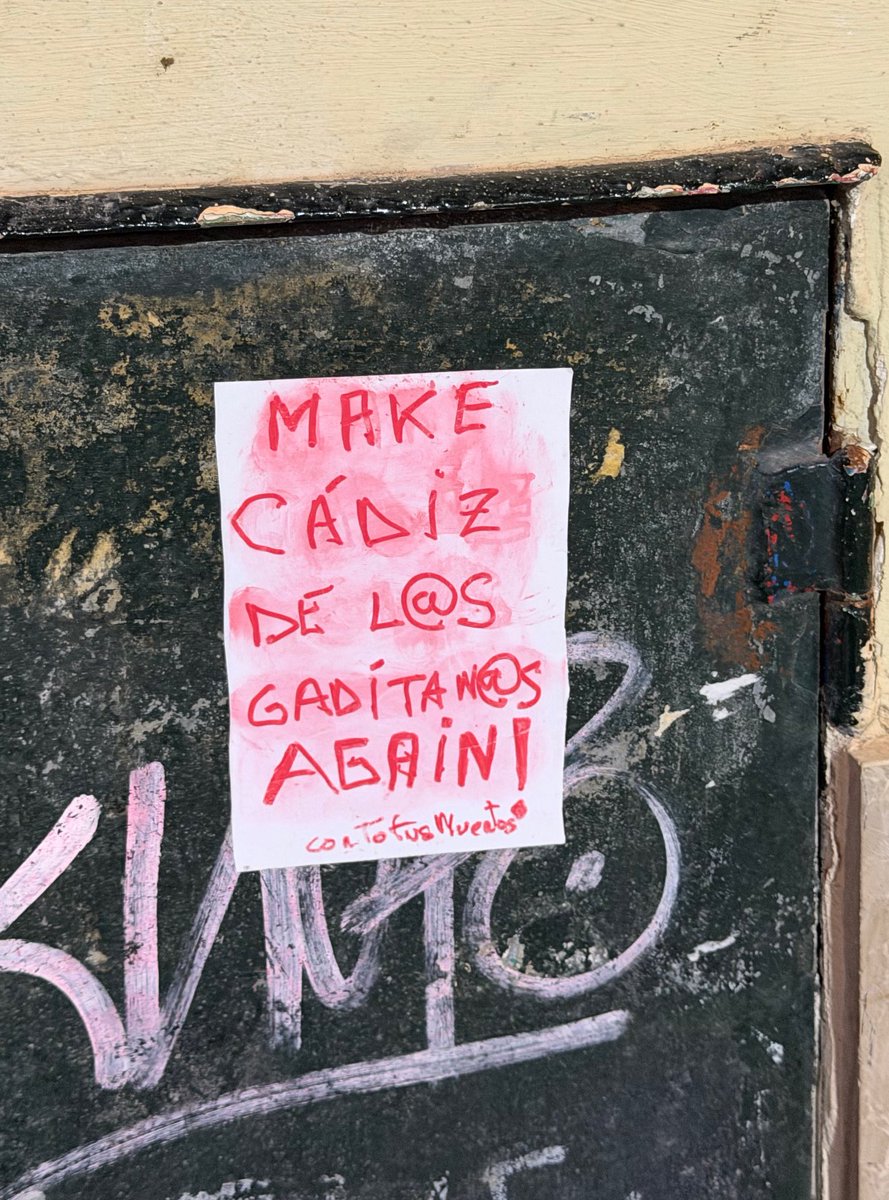 MAKE
CÁDIZ
DE L@S
GADITAN@S
AGAIN!
con To tus Muertos